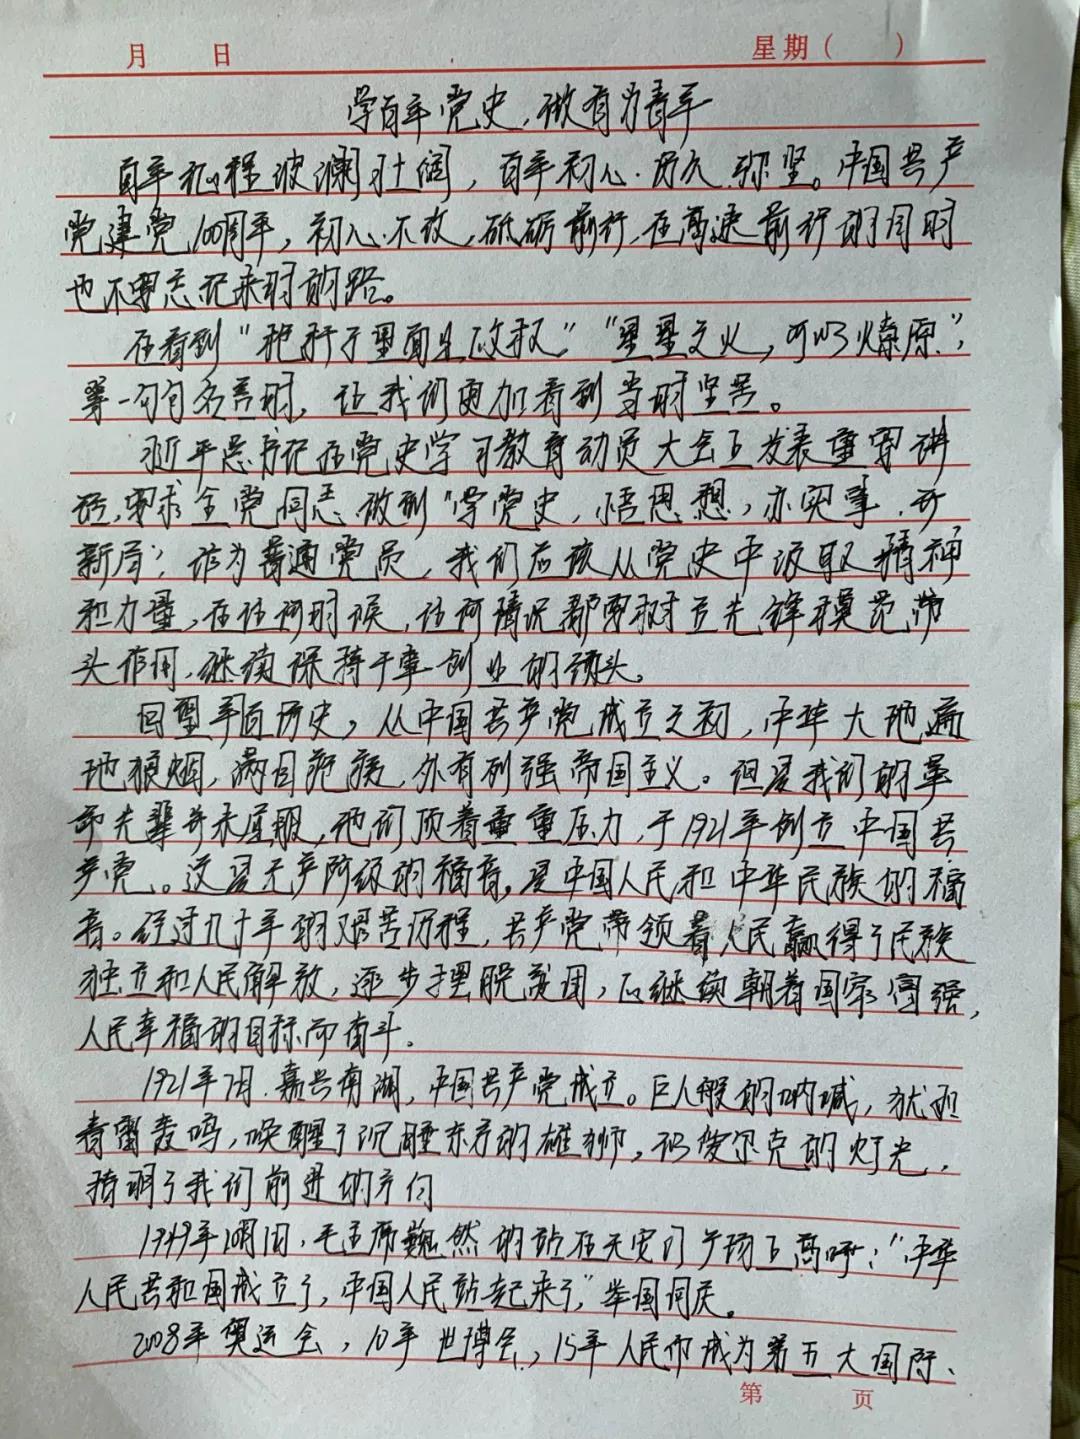 月 日 星期( )
学百年党史，做有为青年
百年征程波澜壮阔，百年初心历久弥坚。中国共产
党建党100周年，初心不改，砥砺前行，在高速前行的同时
也不要忘记来时的路。
在看到“枪杆子里面出政权”“星星之火，可以燎原”，
等一句句名言时，让我们更加看到当时坚苦。
习近平总书记在党史学习教育动员大会上发表重要讲
话，要求全党同志做到“学党史，悟思想，办实事，开
新局”，作为普通党员，我们应该从党史中汲取精神
和力量，在任何时候，任何情况都要树立先锋模范带
头作用，继续保持干事创业的劲头。
回望百年历史，从中国共产党成立之初，中华大地遍
地狼烟，满目疮痍，外有列强帝国主义。但是我们的革
命先辈并未屈服，他们顶着重重压力，于1921年创立中国共
产党。这是无产阶级的福音，是中国人民和中华民族的福
音。经过几十年的艰苦历程，共产党带领着人民赢得了民族
独立和人民解放，逐步摆脱贫困，后继续朝着国家富强，
人民幸福的目标而奋斗。
1921年7月.嘉兴南湖，中国共产党成立。巨人般的呐喊，犹如
春雷轰鸣，唤醒了沉睡东方的雄狮，布尔什维克的灯光，
指明了我们前进的方向
1949年10月1日，毛主席巍然的站在天安门广场上高呼：“中华
人民共和国成立了，中国人民站起来了”举国同庆。
2008年奥运会，10年世博会，15年人民币成为第五大国际、
第 页